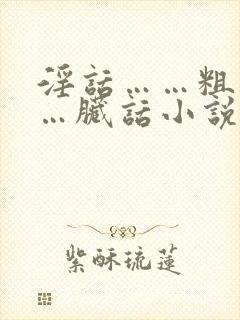 淫話……粗
…臟話小說
紫酥琉蓮